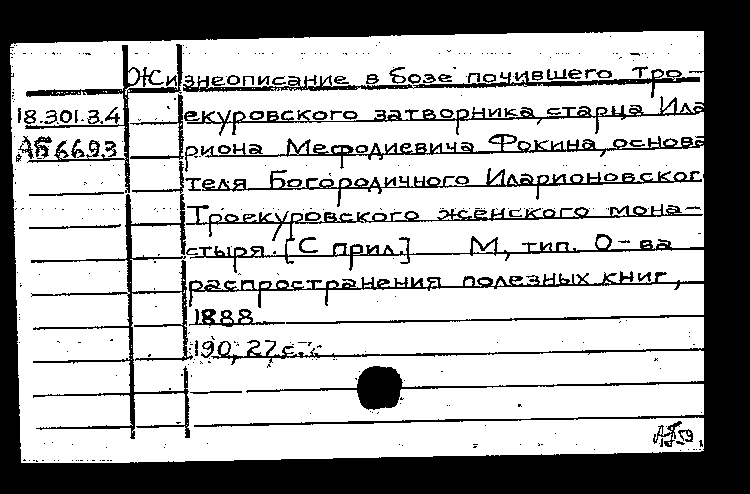 Жизнеописание в бозе почившего Тро-
18.301.3.4 екуровского затворника, старца Ила
АБ 6693 риона Мефодиевича Фокина, основа
теля Богородичного Иларионовског
Троекуровского женского мона-
стыря. [С прил.] М, тип. О-ва
распространения полезных книг,
1888
190, 27 с.